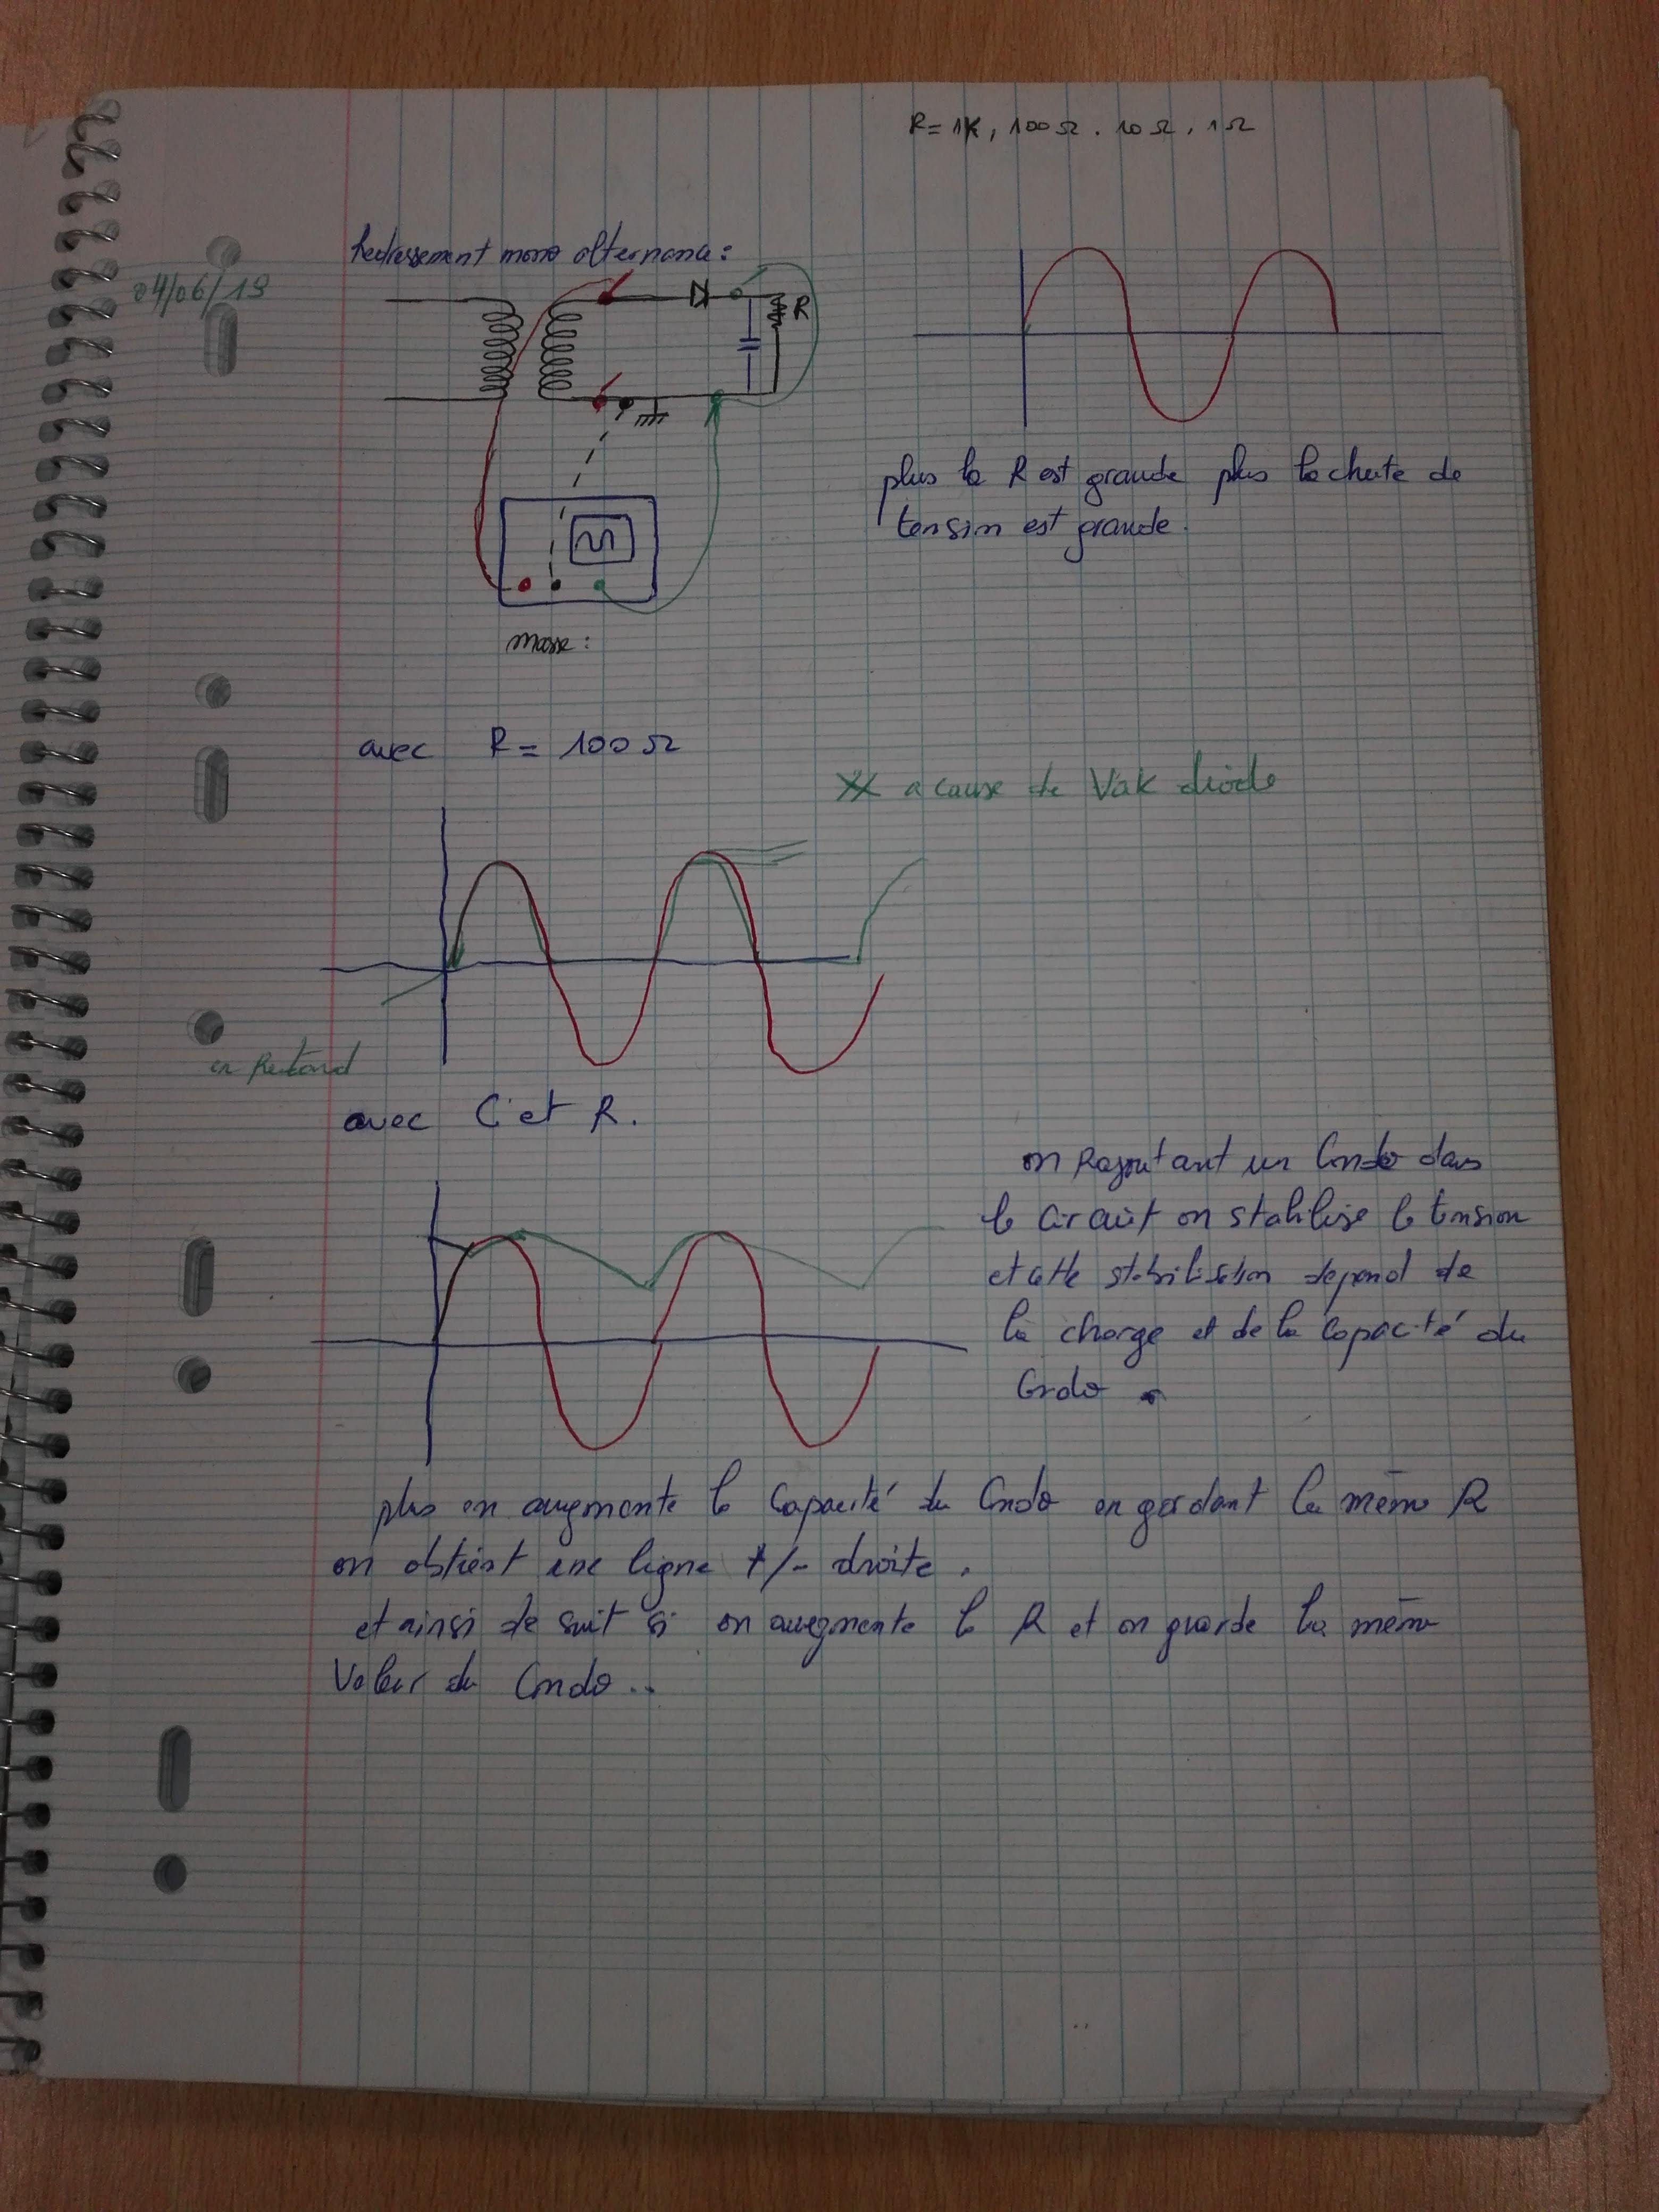 R= 1K, 100Ω. 10Ω, 1Ω
Redressement mono alternance:
04/06/19
R
plus la R est grande plus la chute de
tension est grande.
masse:
avec R= 100Ω
a cause de Vak diode
en Retard
avec C et R.
on Rajoutant un Condo dans
le circuit on stabilise la tension
et cette stabilisation depend de
la charge et de la capacité du
Condo.
plus en augmente la Capacité du Condo en gardant la même R
on obtient une ligne +/- droite.
et ainsi de suit si on augmente la R et on guarde la même
Valeur du Condo..